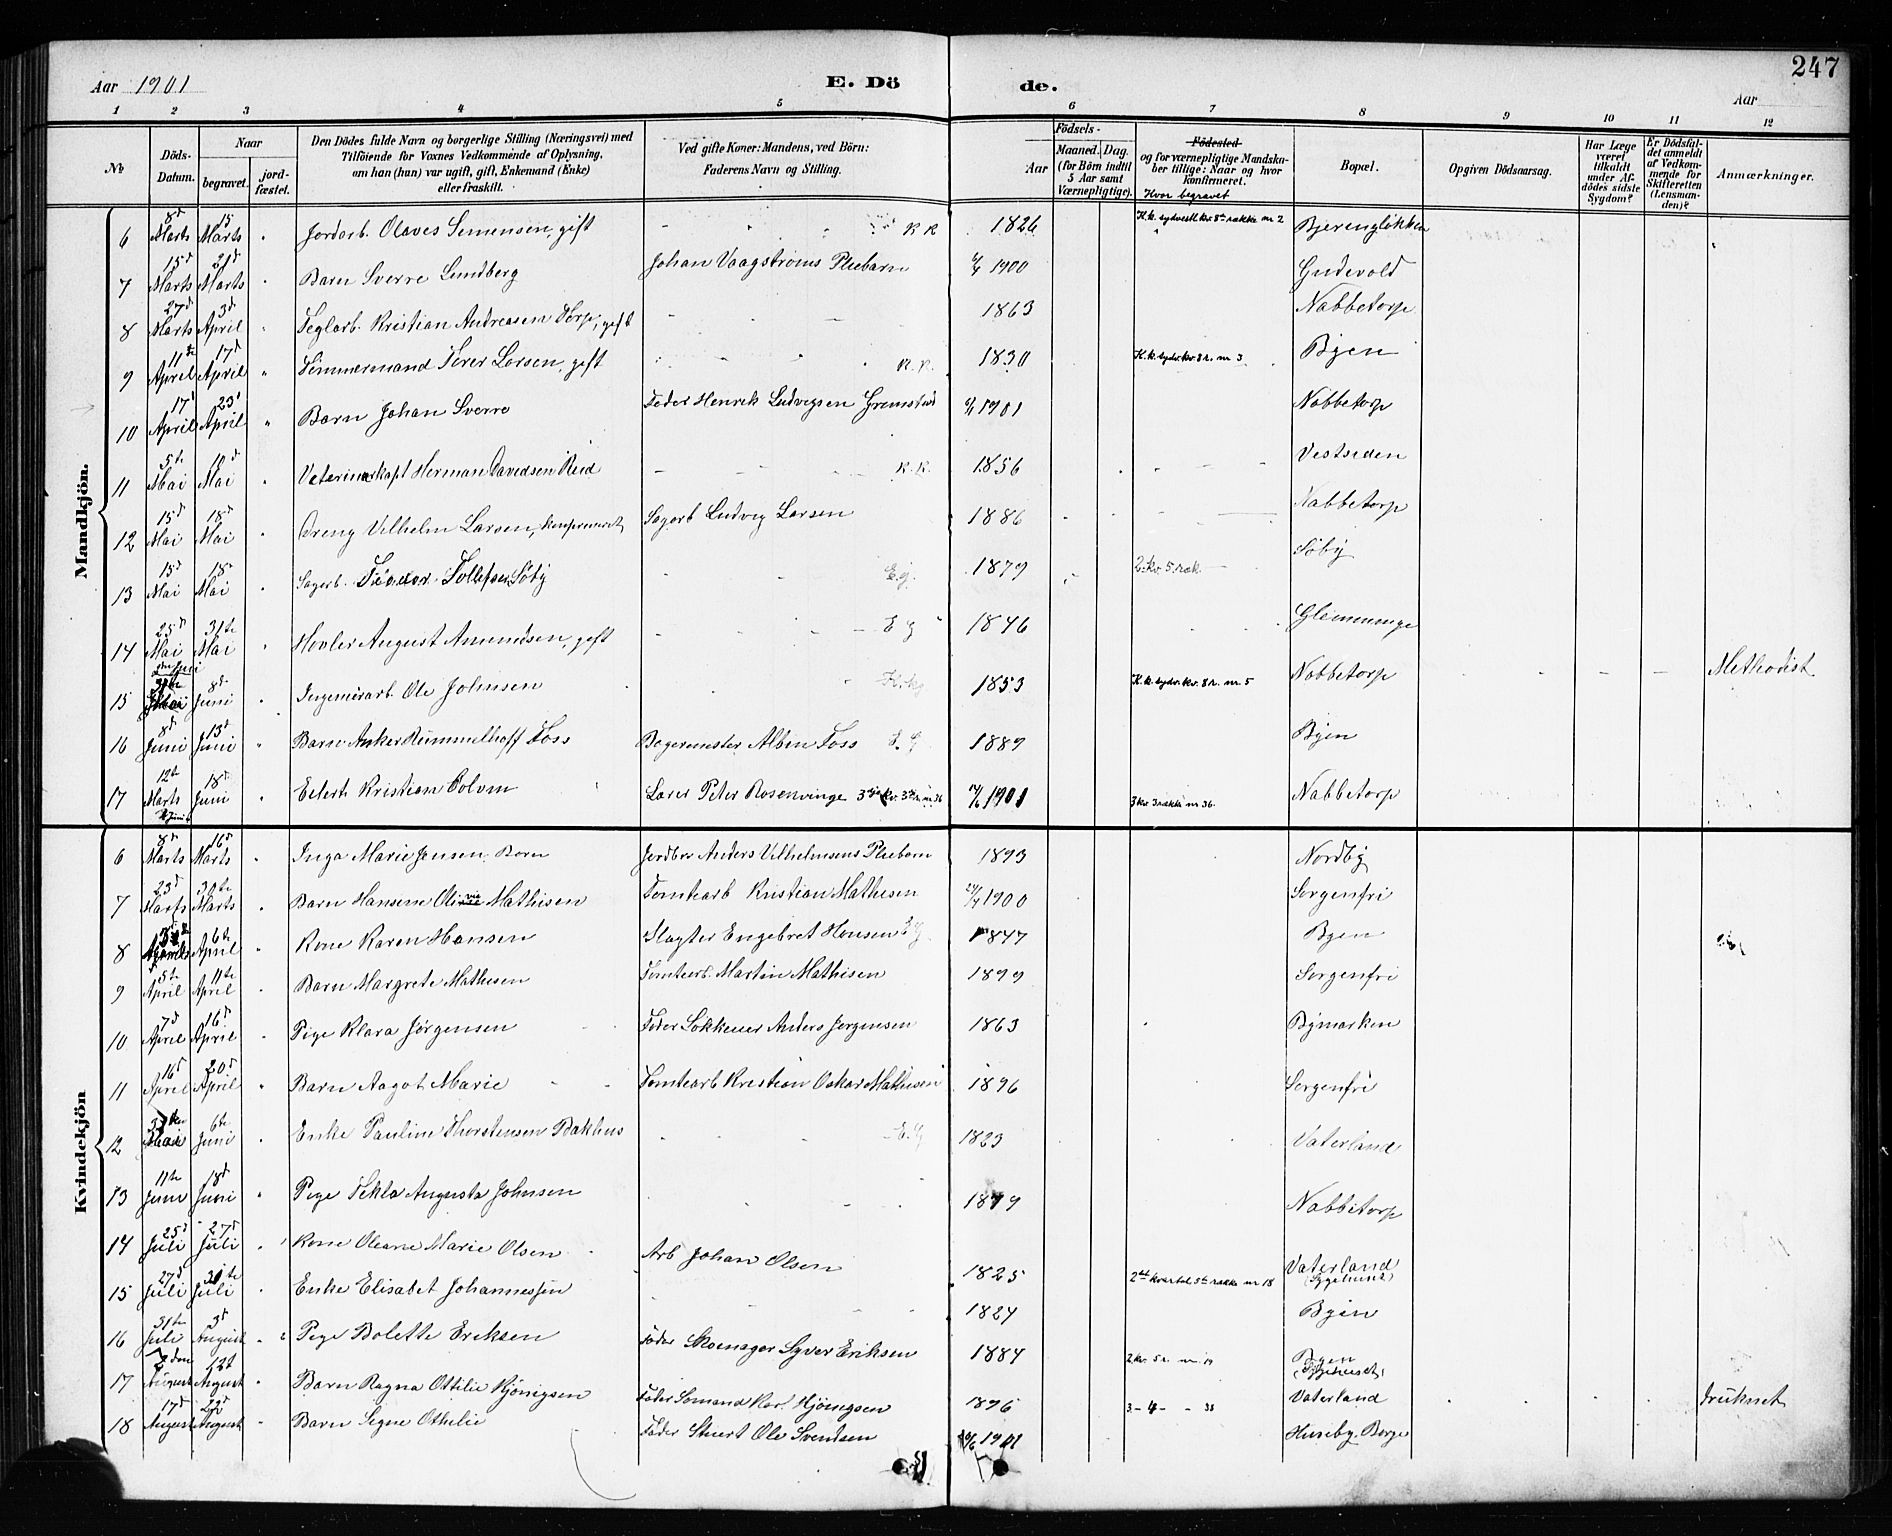 247
Aar 1901
E. Dö
de.
Aar
1 2 3 4 5 6 7 8 9 10 11 12
No
Döds-Datum.
Naar
begravet.
jord-fæstet.
Den Dödes fulde Navn og borgerlige Stilling (Næringsvei) med
Tilföiende for Voxnes Vedkommende af Oplysning,
om han (hun) var ugift, gift, Enkemand (Enke)
eller fraskilt.
Ved gifte Koner: Mandens, ved Börn:
Faderens Navn og Stilling.
Födsels-
Aar
Maaned. Dag.
(for Börn indtil
5 Aar samt
Værnepligtige).
Födested
og for værnepligtige Mandska-
ber tillige: Naar og hvor
konfirmeret.
Hvor begravet
Bopæl.
Opgiven Dödsaarsag.
Har Læge
været
tilkaldt
under Af-
dödes sidste
Sygdom?
Er Dödsfal-
det anmeldt
af Vedkom-
mende for
Skifteretten
(Lensman-
den)?
Anmærkninger.
Mandkjön.
6 8d Marts 15 Marts Jordarb. Olaves Semensen, gift K K 1826 K.k. sydvestl. kv. 8de række nr 2 Bjerengløkken
7 15d Marts 21d Marts Barn Sverre Lundberg Johan Vaagstrøms Pleiebarn 1900 Gudevold
8 27d Marts 3d April Teglarb. Kristian Andreasen Torp, gift 1863 Nabbetorp
9 11te April 17d April Tømmermand Torer Larsen, gift K.K. 1830 K.k. sydv. kv. 8 r. nr 3 Byen
10 17d April 23d April Barn Johan Sverre Fader Henrik Ludvigsen Grimstad 1901 Nabbetorp
11 5te Mai 10d Mai Veterinærkapt Herman Davidsen Reid K.K. 1856 Vestsiden
12 15d Mai 18d Mai Dreng Vilhelm Larsen, konfirmeret Sagarb Ludvig Larsen 1886 Nabbetorp
13 15d Mai 18d Mai Sagarb. Teodor Tollefsen Søby E.g. 1879 2 kv. 5 ræk Søby
14 25d Mai 31te Mai Høvler August Amundsen, gift E g 1846 Glemminge
15 31te Mai 8d Juni Ingeniørarb. Ole Johnsen 1853 K.k. sydv. kv. 8 r. nr. 5 Nabbetorp Methodist
16 8d Juni 13d Juni Barn Anker Rummelhoff Foss Bagermester Albin Foss E. G. 1889 Byen
17 12te Marts 18d Juni Eilert Kristian Losen Peter Rosenvinge 3die kv. 3die r. nr. 36 1901 3 kv 3 række nr 36. Nabbetorp
Kvindekjön
6 8d Marts 16d Marts Inga Marie Jensen Barn Jordbr Anders Vilhelmsens Pleiebarn 1893 Nordby
7 23d Marts 30te Marts Barn Hansine Olivia Mathisen Tomtearb Kristian Mathisen 1900 Sorgenfri
8 6te April Kone Karen Hansen Slagter Engebret Hansen E G 1847 Byen
9 5te April 11te April Barn Margrete Mathisen Tomtearb. Martin Mathisen 1899 Sorgenfri
10 7d April 16d April Pige Klara Jørgensen Fader Anders Jørgensen 1863 Bymarken
11 16d April 20d April Barn Aagot Marie Tomtearb Kristian Oskar Mathisen 1896 Sorgenfri
12 Mai 6te Juni Enke Pauline Thorstensen Bakhus E. G 1823 Vaterland
13 11te Juni 18d Juni Pige Tekla Augusta Johnsen 1879 Nabbetorp
14 25d Juli 27d Juli Kone Oleane Marie Olsen Arb Johan Olsen 1825 2det kvartal 5te række nr 18 Vaterland (Sygehuset)
15 27d Juli 30te Juli Enke Elisabet Johannessen 1824 Byen
16 31te Juli 3d August Pige Bolette Eriksen Fader Skomager Syver Eriksen 1884 2 kv. 5 r. nr. 19 Byen (Sygehuset)
17 August 12te August Barn Ragna Ottilie Hjørnigsen Fader Sømand Karl Hjørnigsen 1896 3 - 4 - - 38 Vaterland druknet
18 17d August 22d August Barn Signe Othelie Fader Stuert Ole Svendsen 1901 Huseby Borge